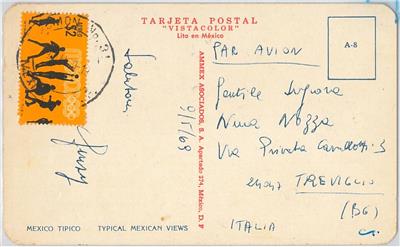 TARJETA POSTAL
"VISTACOLOR"
Lito en México
A-8
PAR AVION
AMMEX ASOCIADOS, S. A. Apartado 274, México, D. F.
9/5/69
Saluti
Gentile Signora
Nina Nozza
Via Privata Cavallotti 3
24047 TREVIGLIO
(BG)
ITALIA
MEXICO TIPICO TYPICAL MEXICAN VIEWS